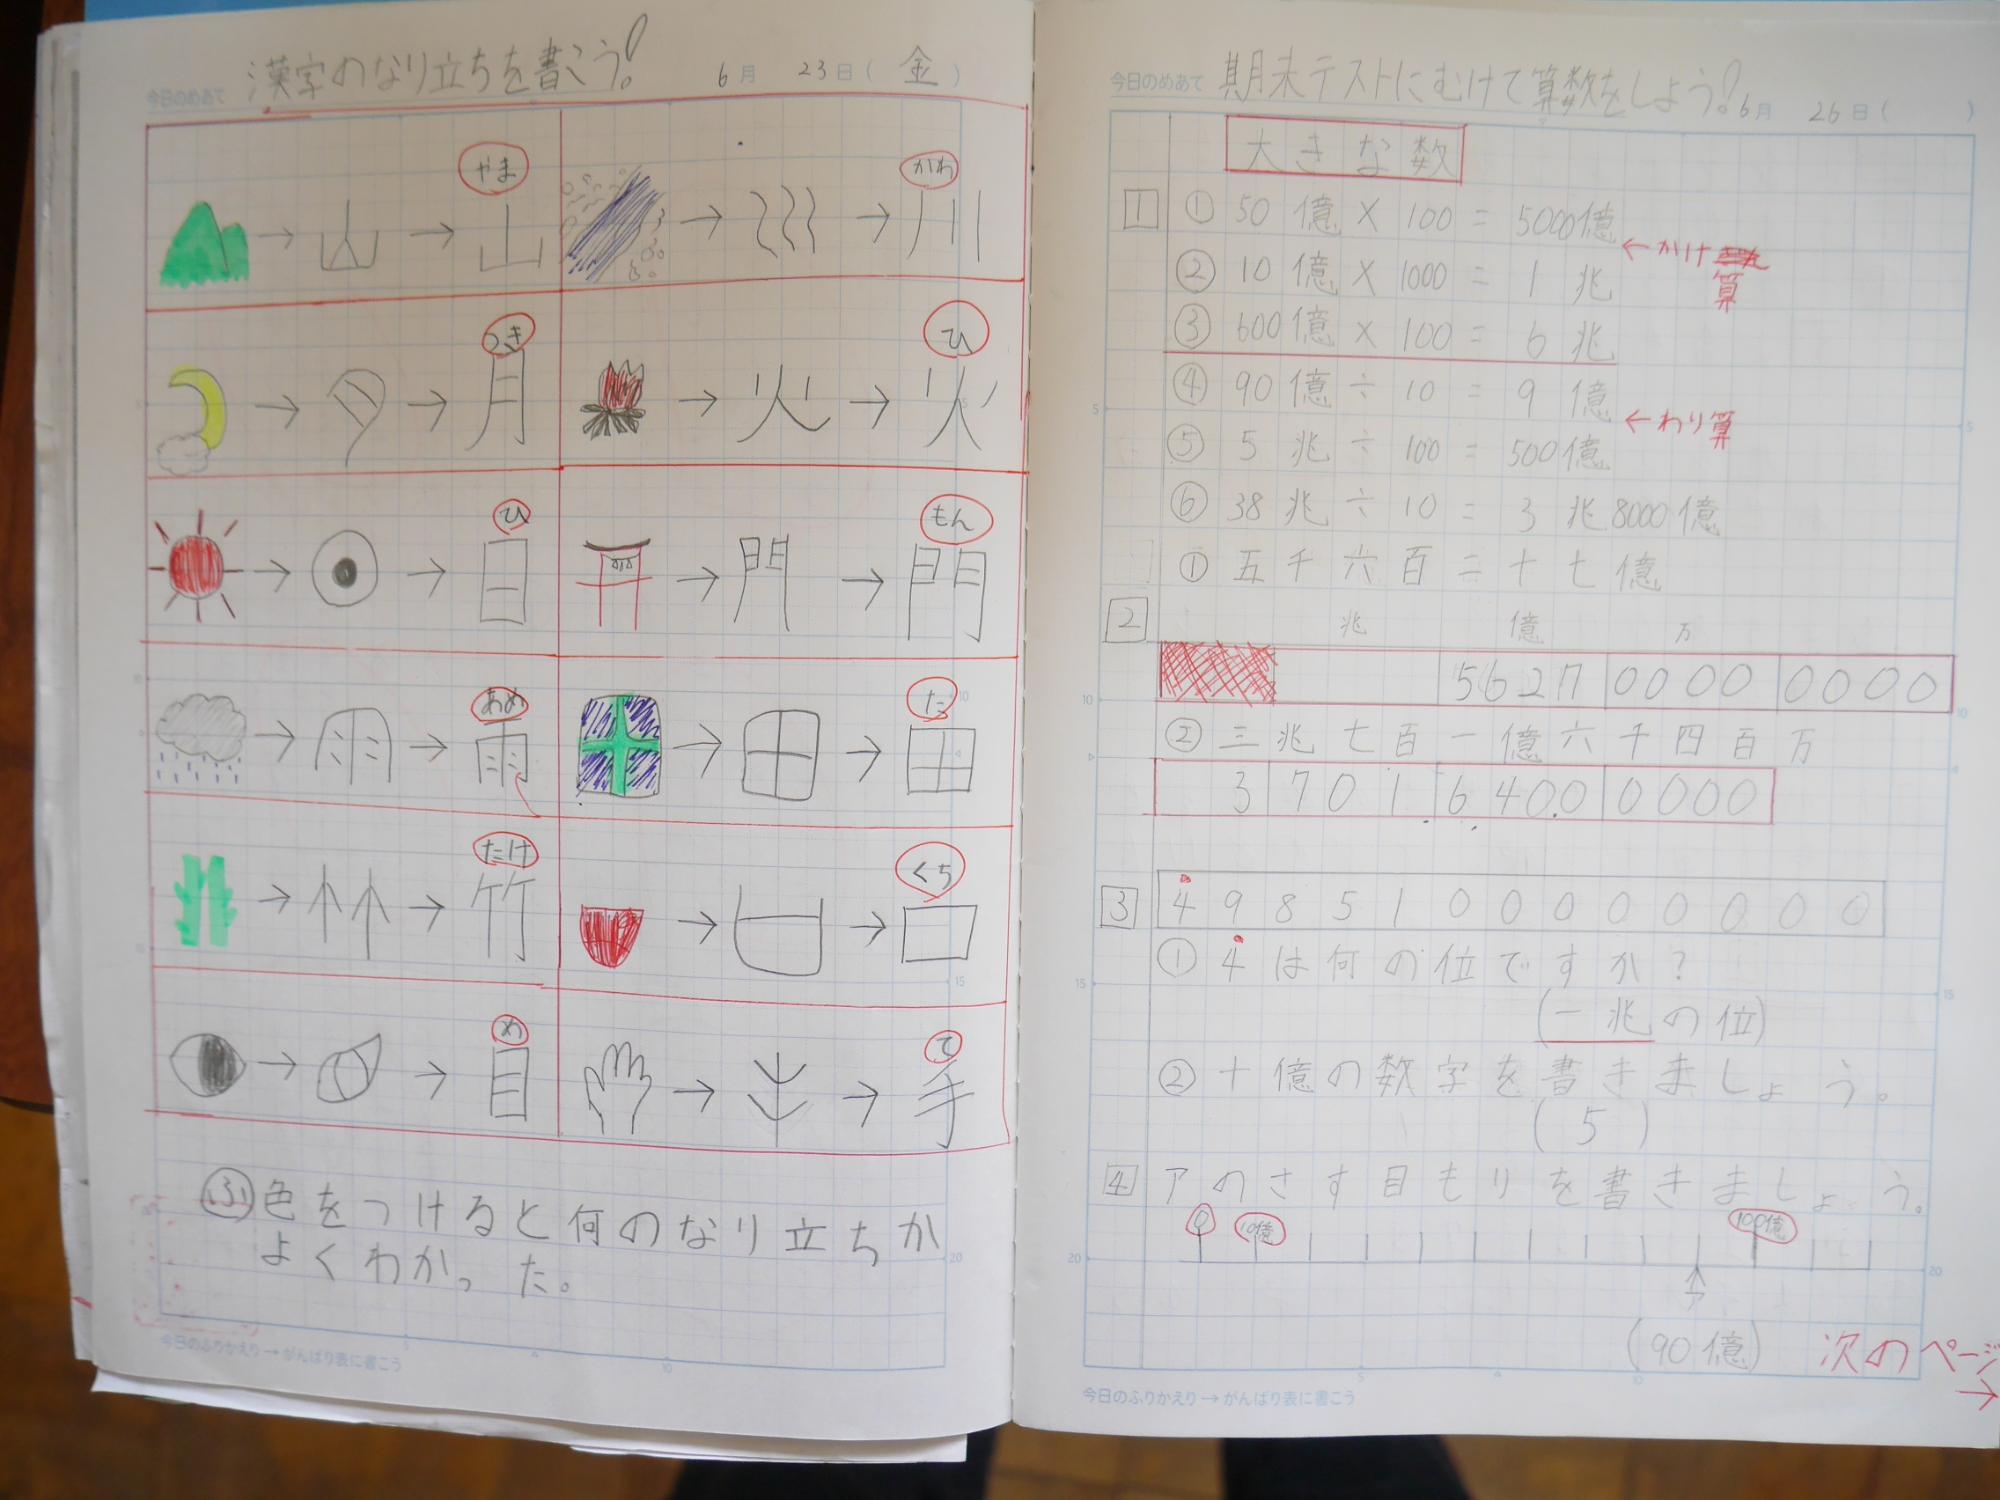 今日のめあて 漢字のなり立ちを書こう! 6月 23日(金)
やま
山
かわ
川
つき
月
ひ
火
ひ
日
もん
門
あめ
雨
た
田
たけ
竹
くち
口
め
目
て
手
ふ 色をつけると何のなり立ちか
よくわかった。
今日のふりかえり→がんばり表に書こう
今日のめあて 期末テストにむけて算数をしよう! 6月 26日( )
大きな数
1 ① 50億×100=5000億
←かけ算
② 10億×1000=1兆
③ 600億×100=6兆
④ 90億÷10=9億
←わり算
⑤ 5兆÷100=500億
⑥ 38兆÷10=3兆8000億
① 五千六百二十七億
2 兆 億 万
5627 0000 0000
② 三兆七百一億六千四百万
3 701 6400 0000
3 4985100000000
① 4は何の位ですか?
(一兆の位)
② 十億の数字を書きましょう。
(5)
4 アのさす目もりを書きましょう。
0 10億 100億
ア
(90億)
次のページ
→
今日のふりかえり→がんばり表に書こう